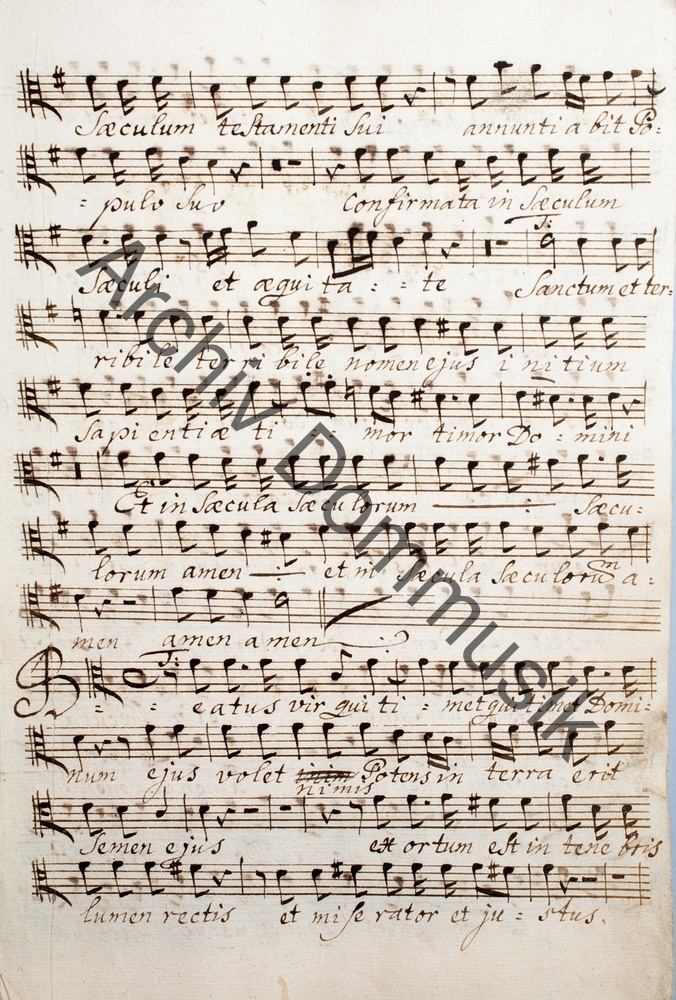 Sæculum testamenti sui annunti a bit Po:
: pulo suo Confirmata in Sæculum
T:
Sæculi et æqui ta : : te Sanctum et ter:
ribile terri bile nomen ejus i ni tium
Sapi entiæ ti mor timor Do : mini
Et in Sæcula Sæculorum Sæcu:
lorum amen et in Sæcula Sæculorum a:
men amen amen
T:
B : : eatus vir qui ti : met qui timet Domi:
num ejus volet Potens in terra erit
nimis
Semen ejus ex ortum est in tene bris
lumen rectis et mise rator et ju : stus.
Archiv Dommusik